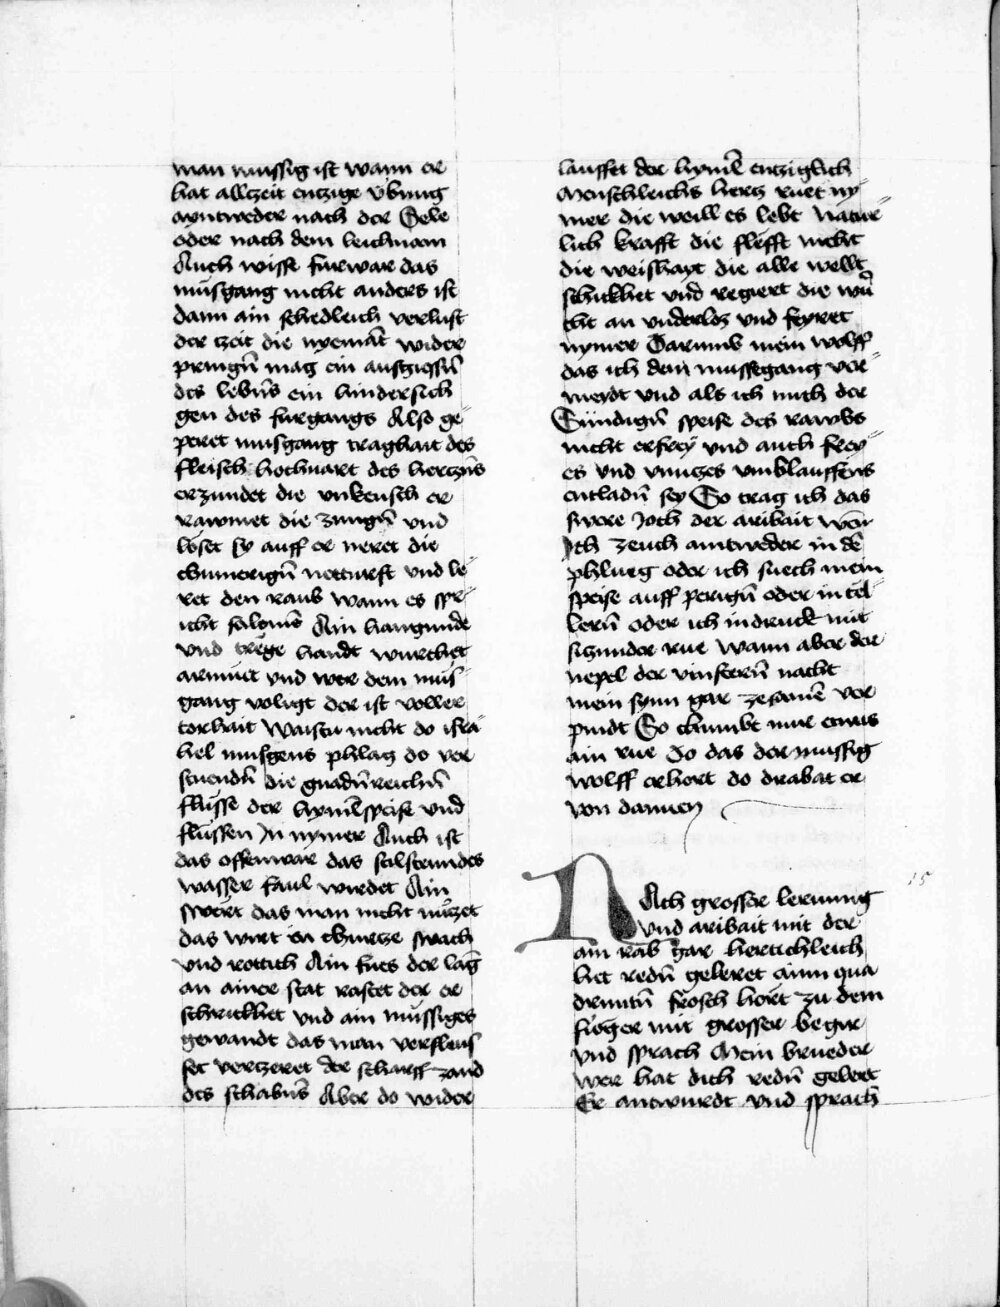 man mussig ist wann er
hat allczeit enczige übung
ayntweder nach der Sele
oder nach dem leichnam
Auch wisse fürwar das
müsgang nicht anders ist
dann ain schedleich verlust
der czeit die nyemāt wider
pringn̄ mag ein ausgiessn̄
des lebn̄s ein hindersich
gen des furgangs Also ge-
peret musgang traghait des
fleisch hochuart des herczn̄s
erzundet die unkeusch er
rawmet die zungn̄ vnd
löset sy auff er neret die
chumerign̄ notturft vnd le-
ret den raub wann es spr-
icht salomē Ain hangunde
vnd trëge handt wurchet
armuet vnd wer dem mus-
gang volugt der ist voller
torhait Waistu nicht do isra-
hel musgens phlag do ver
sciendn̄ die gnadn̄reichn̄
flüsse der hymēlspeise vnd
flussen In nymer Auch ist
das offenwar das stilsteundes
wasser faul wirdet Ain
swert das man nicht nüczet
das wirt in churcze swach
vnd rottich Ain fues der lang
an ainer stat rastet der er
schrickhet vnd ain müssiges
gewandt das man verfleus
set verczeret der scharff zand
des schabn̄s Aber do wider
lauffet der hymēl encziglich
Menschleichs hercz ruet ny-
mer die weill es lebt Natur-
lich krafft die slefft nicht
die weishayt die alle wellt
schickhet vnd regiert die wür
cht an vnderlos vnd feyret
nymer Darumb mein wolff
das ich dem mussegang ver-
meydt vnd als ich mich der
Sündign̄ speise des rawbs
nicht erfrey vnd auch frey-
es vnd vnnuczes vmblauffens
entladn̄ sey So trag ich das
swere Joch der aribait wen
Ich zeuch aintweder in dē
phlueg oder ich suech mein
speise auff pergn̄ oder in tel-
lern̄ oder ich indruck mit
siczunder rue Wann aber der
nepel der vinstern̄ nacht
mein synn gar zesamē ver
pindt So chumbt mir etwas
ain rue Do das der mussig
wolff erhort do drabat er
von dannen
NAch grosser lernung
vnd aribait mit der
ain rab gar herttichleich
het redn̄ geleret ainn qua
drintn̄ frosch hort zu dem
füger mit grosser begir
vnd sprach Mein brueder
wer hat dich redn̄ gelert
Er antwurdt vnd sprach
15